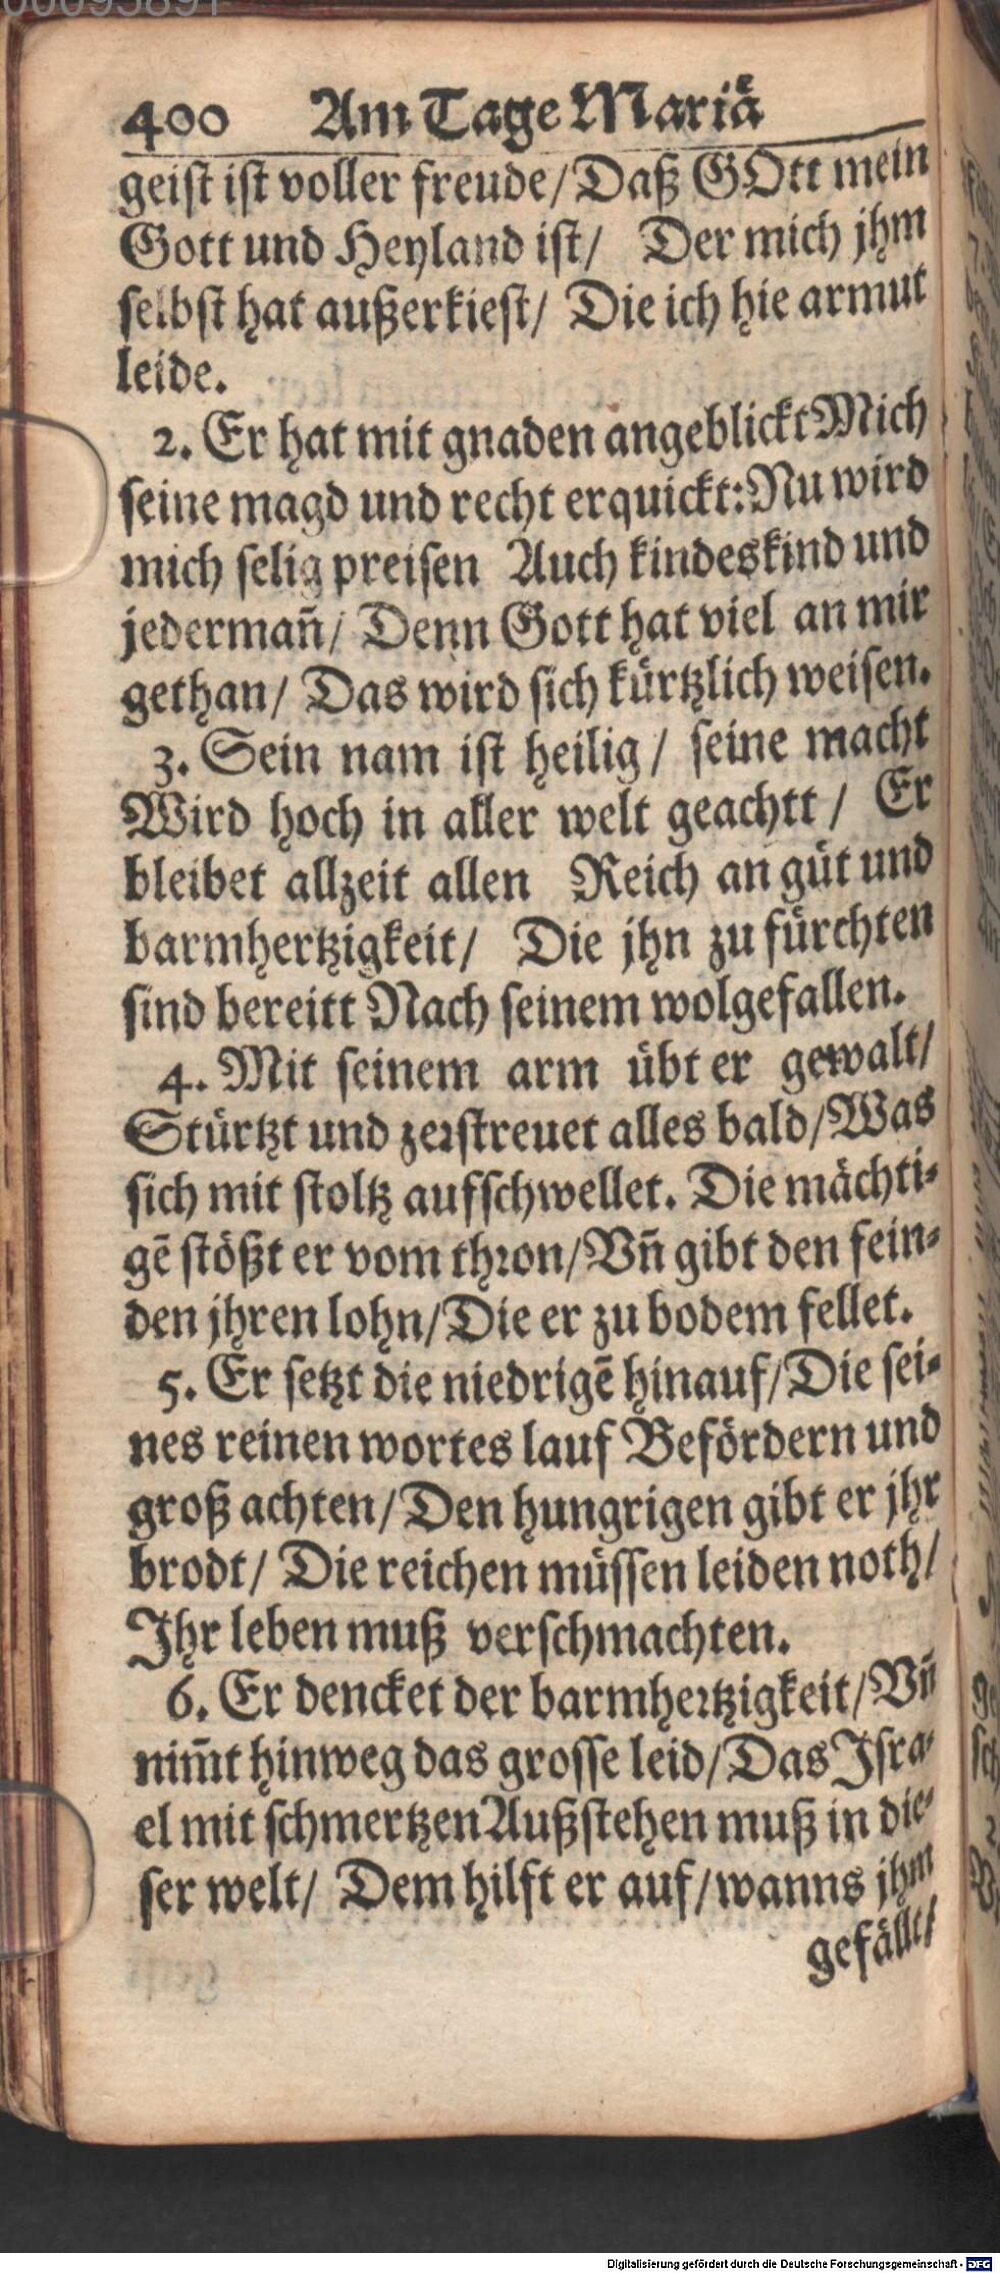 00095891
400 Am Tage Mariä
geist ist voller freude/ Daß GOtt mein
Gott und Heyland ist/ Der mich jhm
selbst hat außerkiest/ Die ich hie armut
leide.
2. Er hat mit gnaden angeblickt Mich
seine magd und recht erquickt: Nu wird
mich selig preisen Auch kindeskind und
jederman̄/ Denn Gott hat viel an mir
gethan/ Das wird sich kürtzlich weisen.
3. Sein nam ist heilig/ seine macht
Wird hoch in aller welt geachtt/ Er
bleibet allzeit allen Reich an güt und
barmhertzigkeit/ Die jhn zu fürchten
sind bereitt Nach seinem wolgefallen.
4. Mit seinem arm übt er gewalt/
Stürtzt und zerstreuet alles bald/ Was
sich mit stoltz aufschwellet. Die mächti-
gē stößt er vom thron/ Vn̄ gibt den fein-
den jhren lohn/ Die er zu bodem fellet.
5. Er setzt die niedrigē hinauf/ Die sei-
nes reinen wortes lauf Befördern und
groß achten/ Den hungrigen gibt er jhr
brodt/ Die reichen müssen leiden noth/
Ihr leben muß verschmachten.
6. Er dencket der barmhertzigkeit/ Vn̄
nim̄t hinweg das grosse leid/ Das Isra-
el mit schmertzen Außstehen muß in die-
ser welt/ Dem hilft er auf/ wanns jhm
gefällt/
Digitalisierung gefördert durch die Deutsche Forschungsgemeinschaft - DFG